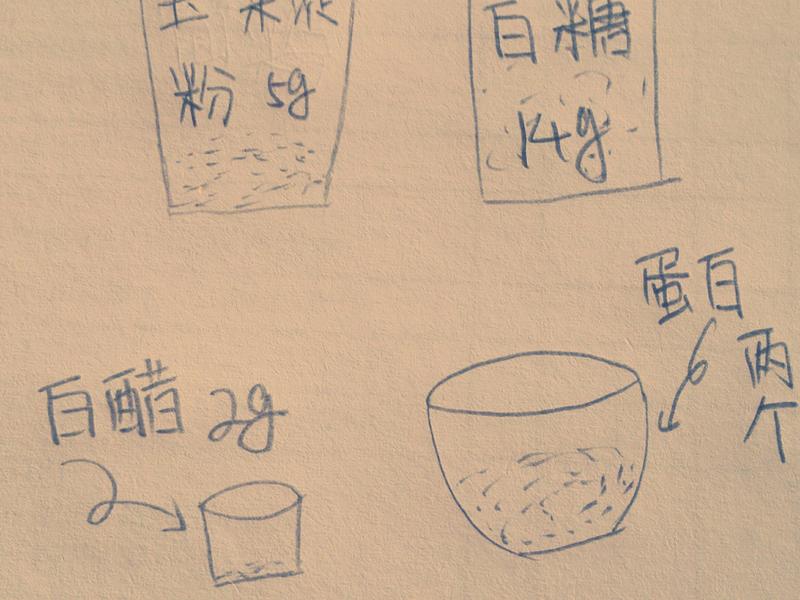 玉米淀
粉 5g
白糖
14g
蛋白
两
个
白醋 2g